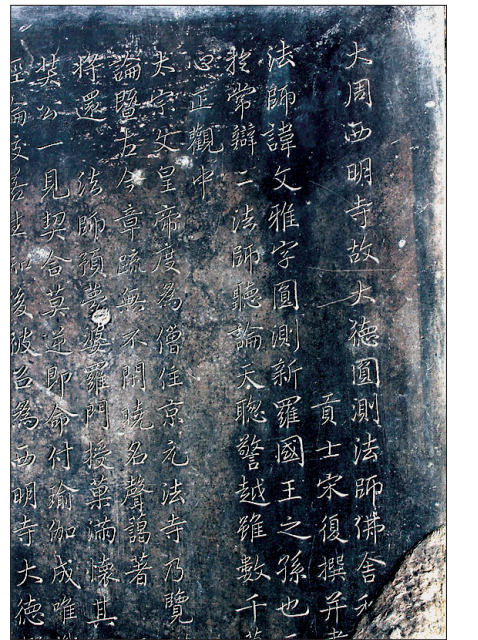 大周西明寺故大德圓測法師佛舍利
貢士宋復撰并
法師諱文雅字圓測新羅國王之孫也
於常辯二法師聽論天聰警越雖數千
心正觀中
太宗文皇帝度為僧住京元法寺乃覽
論暨古今章疏無不閑曉名聲藹著
將還 法師預夢婆羅門授菓滿懷其
奘公一見契合莫逆即命付瑜伽成唯
論皎若生知後被召為西明寺大德